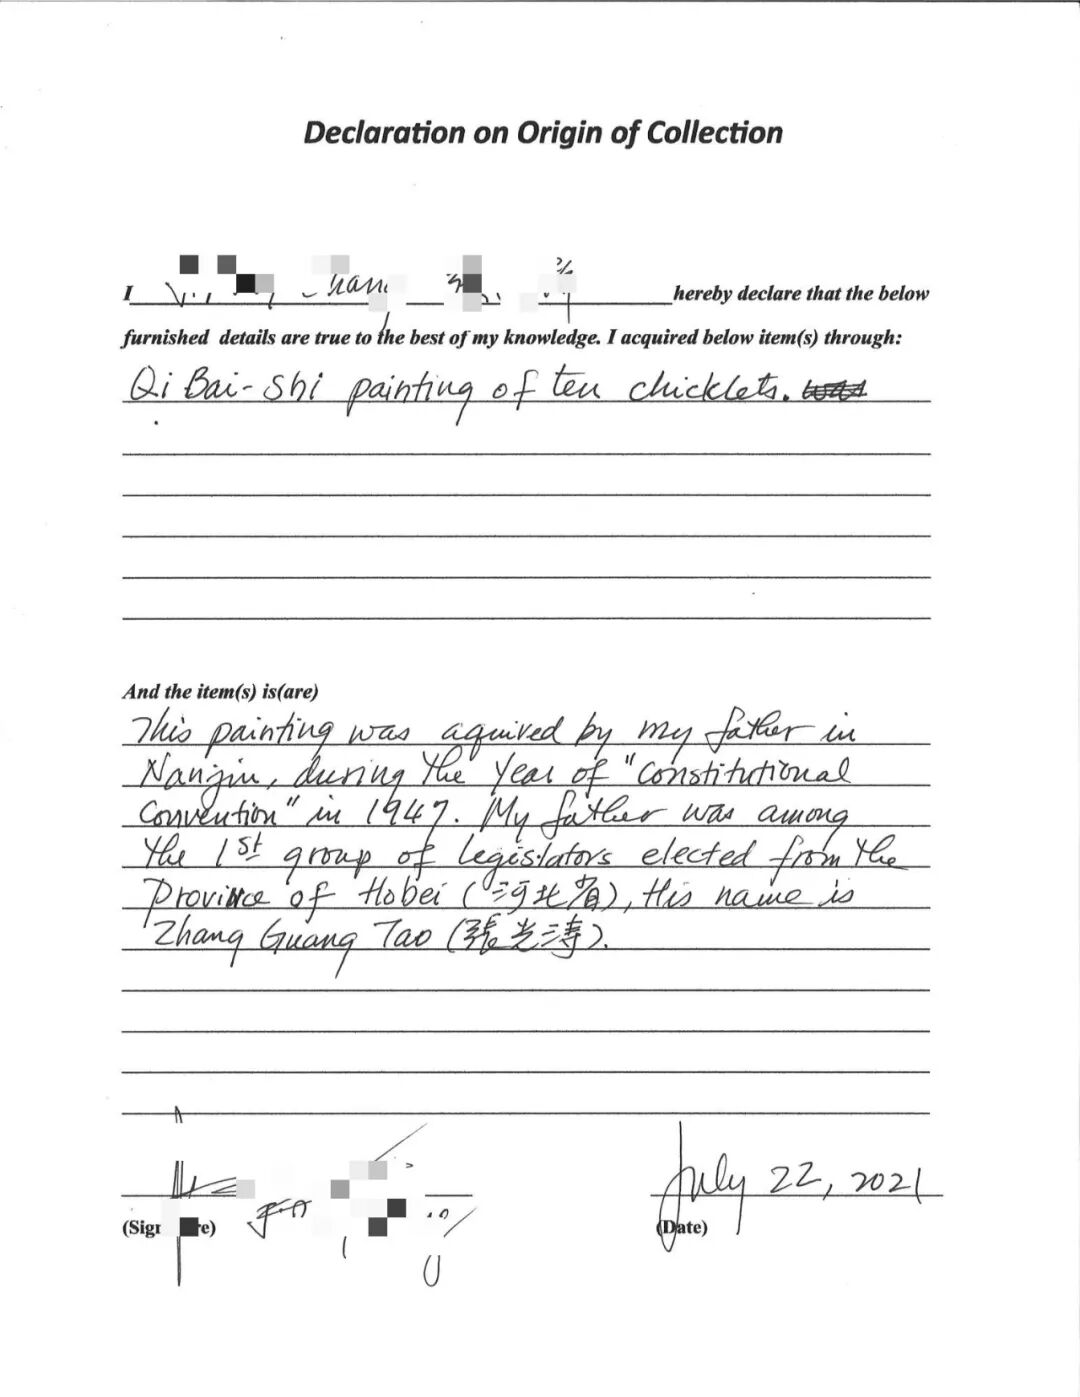 Declaration on Origin of Collection
I hereby declare that the below
furnished details are true to the best of my knowledge. I acquired below item(s) through:
Qi Bai-Shi painting of ten chicklets.
And the item(s) is(are)
This painting was aquired by my father in
Nanjin, during the Year of "Constitutional
Convention" in 1947. My father was among
the 1st group of legislators elected from the
Province of Hobei (河北省), His name is
Zhang Guang Tao (張光濤).
July 22, 2021
(Date)